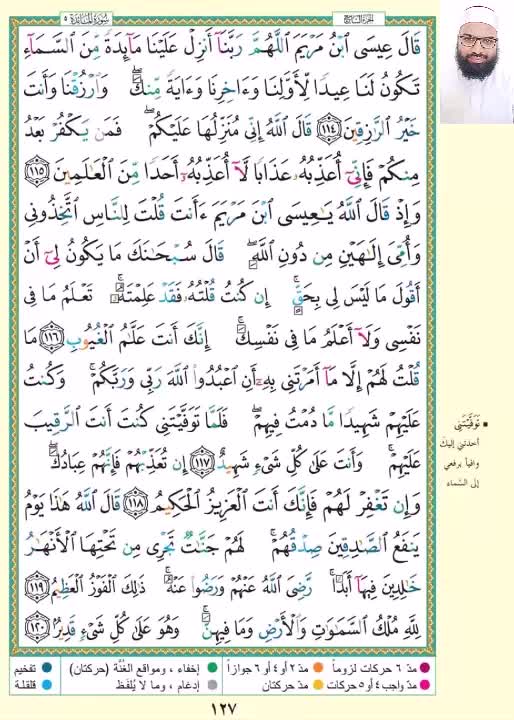 سُورَةُ المَائِدَةِ ٥
الجزء السابع
قَالَ عِيسَى ابْنُ مَرْيَمَ اللَّهُمَّ رَبَّنَا أَنزِلْ عَلَيْنَا مَآئِدَةً مِّنَ السَّمَآءِ
تَكُونُ لَنَا عِيدًا لِّأَوَّلِنَا وَءَاخِرِنَا وَءَايَةً مِّنكَ ۖ وَارْزُقْنَا وَأَنتَ
خَيْرُ الرَّازِقِينَ ﴿١١٤﴾ قَالَ اللَّهُ إِنِّى مُنَزِّلُهَا عَلَيْكُمْ ۖ فَمَن يَكْفُرْ بَعْدُ
مِنكُمْ فَإِنِّىٓ أُعَذِّبُهُۥ عَذَابًا لَّآ أُعَذِّبُهُۥٓ أَحَدًا مِّنَ الْعَالَمِينَ ﴿١١٥﴾
وَإِذْ قَالَ اللَّهُ يَاعِيسَى ابْنَ مَرْيَمَ ءَأَنتَ قُلْتَ لِلنَّاسِ اتَّخِذُونِى
وَأُمِّىَ إِلَـٰهَيْنِ مِن دُونِ اللَّهِ ۖ قَالَ سُبْحَـٰنَكَ مَا يَكُونُ لِىٓ أَنْ
أَقُولَ مَا لَيْسَ لِى بِحَقٍّ ۚ إِن كُنتُ قُلْتُهُۥ فَقَدْ عَلِمْتَهُۥ ۚ تَعْلَمُ مَا فِى
نَفْسِى وَلَآ أَعْلَمُ مَا فِى نَفْسِكَ ۚ إِنَّكَ أَنتَ عَلَّـٰمُ الْغُيُوبِ ﴿١١٦﴾ مَا
قُلْتُ لَهُمْ إِلَّا مَآ أَمَرْتَنِى بِهِۦٓ أَنِ اعْبُدُوا اللَّهَ رَبِّى وَرَبَّكُمْ ۚ وَكُنتُ
عَلَيْهِمْ شَهِيدًا مَّا دُمْتُ فِيهِمْ ۖ فَلَمَّا تَوَفَّيْتَنِى كُنتَ أَنتَ الرَّقِيبَ
عَلَيْهِمْ ۚ وَأَنتَ عَلَىٰ كُلِّ شَىْءٍ شَهِيدٌ ﴿١١٧﴾ إِن تُعَذِّبْهُمْ فَإِنَّهُمْ عِبَادُكَ ۖ
وَإِن تَغْفِرْ لَهُمْ فَإِنَّكَ أَنتَ الْعَزِيزُ الْحَكِيمُ ﴿١١٨﴾ قَالَ اللَّهُ هَـٰذَا يَوْمُ
يَنفَعُ الصَّـٰدِقِينَ صِدْقُهُمْ ۚ لَهُمْ جَنَّـٰتٌ تَجْرِى مِن تَحْتِهَا الْأَنْهَـٰرُ
خَـٰلِدِينَ فِيهَآ أَبَدًا ۚ رَّضِىَ اللَّهُ عَنْهُمْ وَرَضُوا عَنْهُ ۚ ذَٰلِكَ الْفَوْزُ الْعَظِيمُ ﴿١١٩﴾
لِلَّهِ مُلْكُ السَّمَـٰوَٰتِ وَالْأَرْضِ وَمَا فِيهِنَّ ۚ وَهُوَ عَلَىٰ كُلِّ شَىْءٍ قَدِيرٌۢ ﴿١٢٠﴾
▪ تَوَفَّيْتَنِي
أخذتني إليك
وافياً برفعي
إلى السّماء
● مدّ ٦ حركات لزوماً ● مدّ ٢ أو ٤ أو ٦ جوازاً ● إخفاء، ومواقع الغُنَّة (حركتان) ● تفخيم
● مدّ واجب ٤ أو ٥ حركات ● مدّ حركتان ● إدغام، وما لا يُلفَظ ● قلقلة
١٢٧